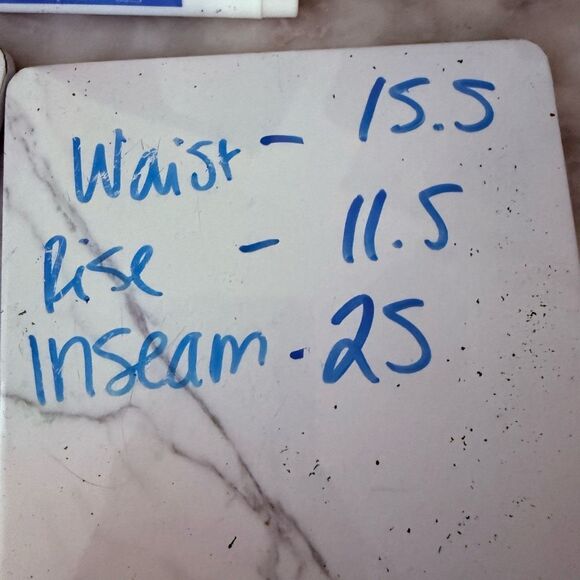 Waist - 15.5
Rise - 11.5
Inseam - 25